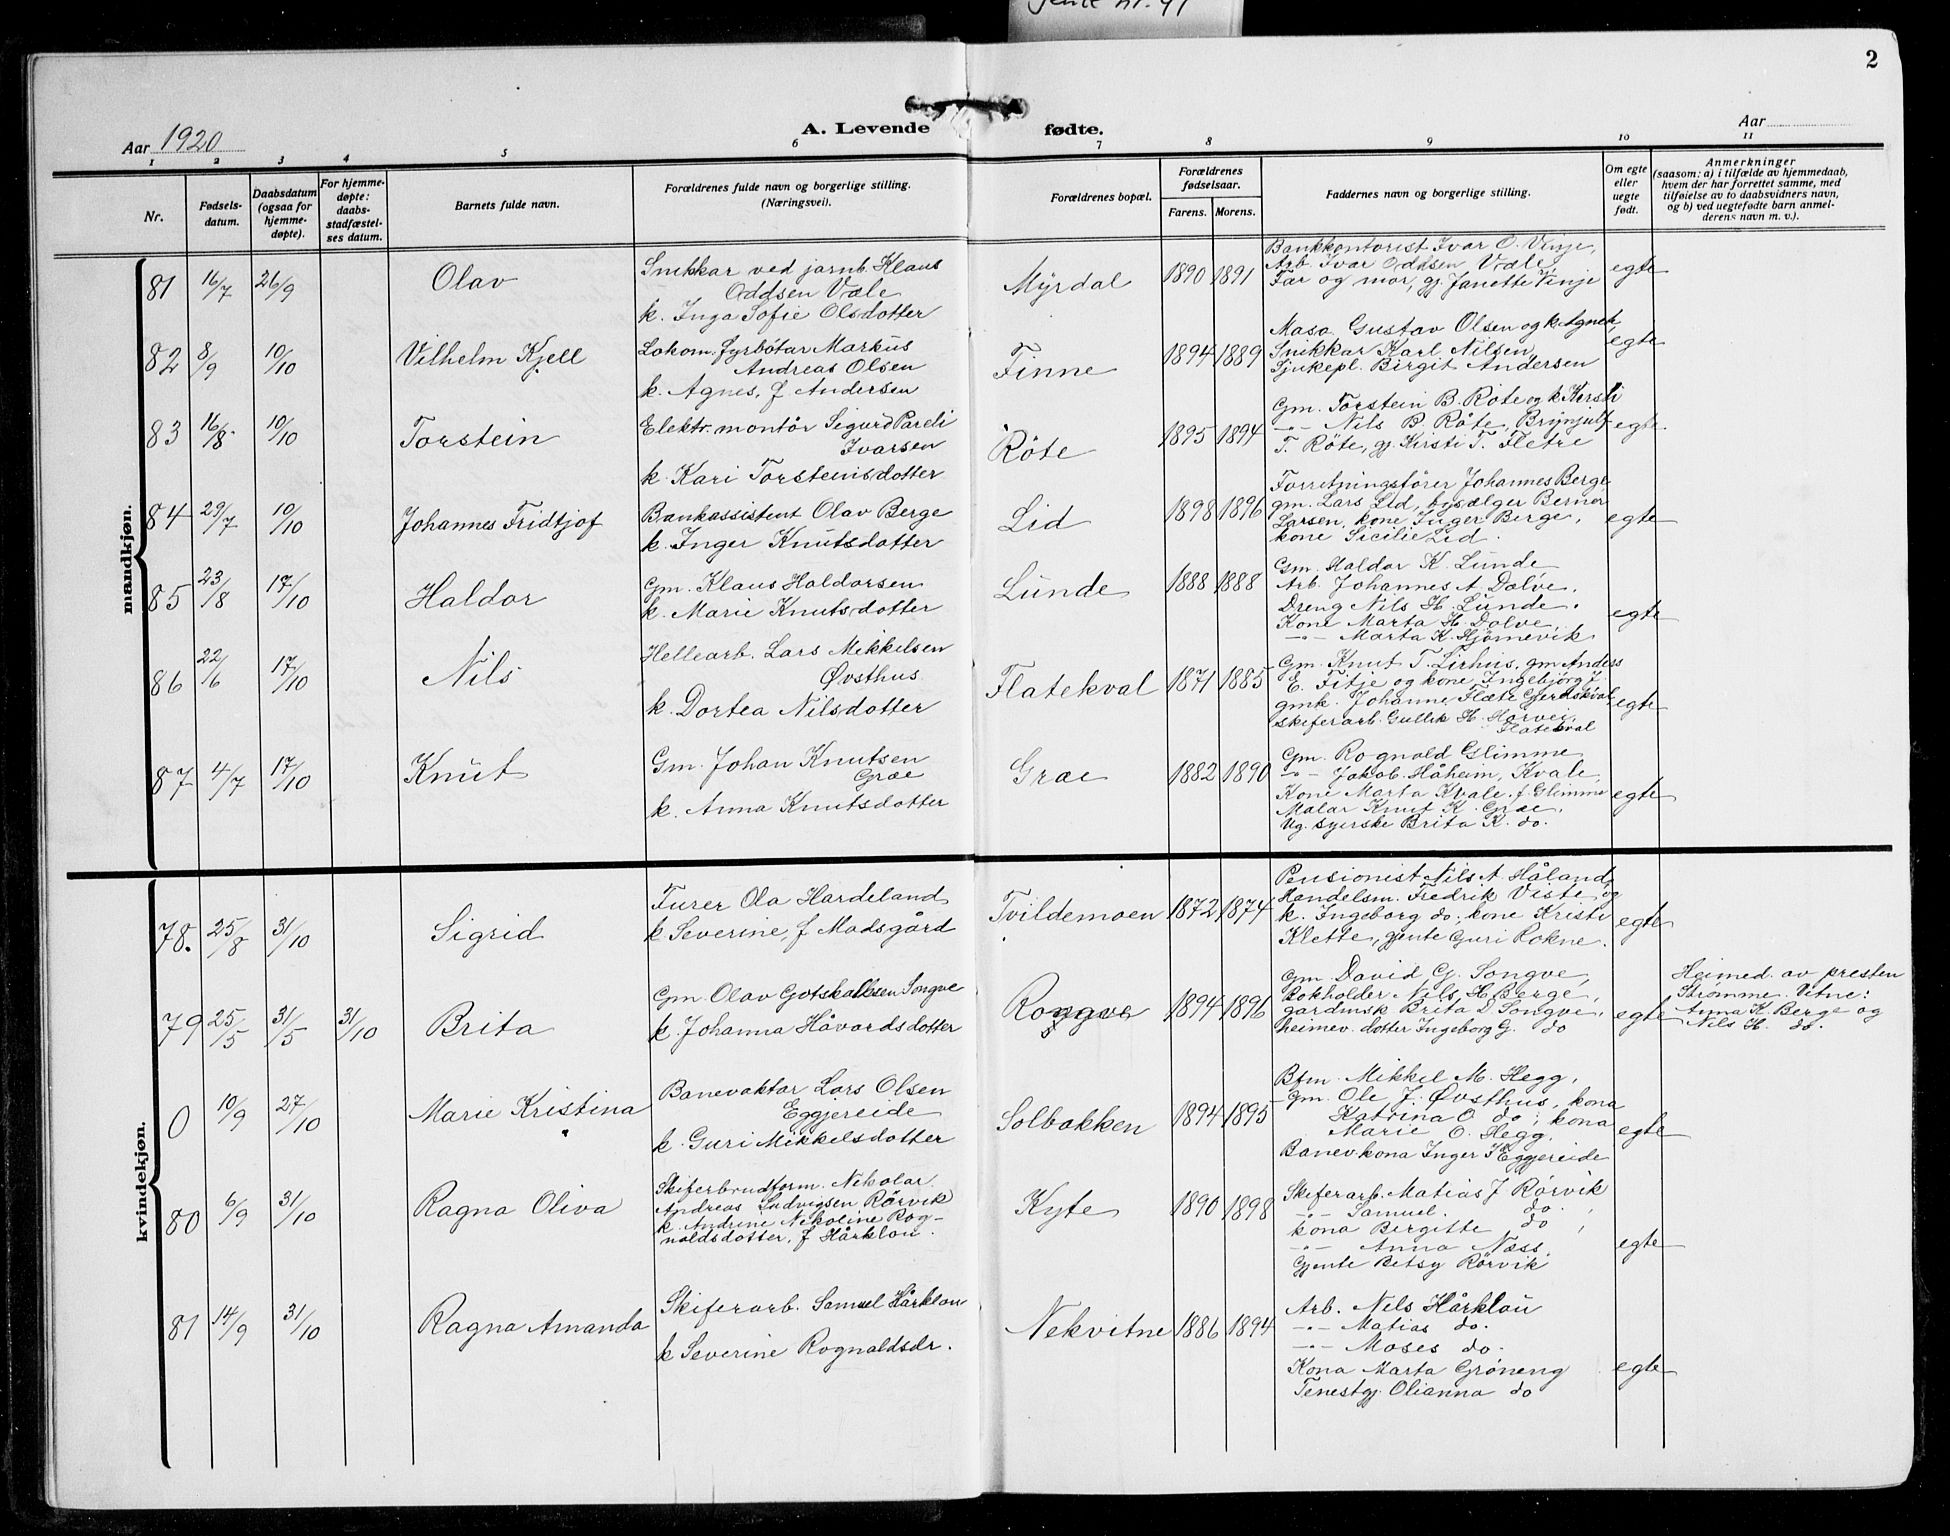 2
Aar 1920
A. Levende fødte.
Aar
1 2 3 4 5 6 7 8 9 10 11
Nr.
Fødsels-
datum.
Daabsdatum
(ogsaa for
hjemme-
døpte).
For hjemme-
døpte:
daabs-
stadfæstel-
ses datum.
Barnets fulde navn.
Forældrenes fulde navn og borgerlige stilling.
(Næringsvei).
Forældrenes bopæl.
Forældrenes
fødselsaar.
Farens. Morens.
Faddernes navn og borgerlige stilling.
Om egte
eller
uegte
født.
Anmerkninger
(saasom: a) i tilfælde av hjemmedaab,
hvem der har forrettet samme, med
tilføielse av to daabsvidners navn,
og b) ved uegtefødte barn anmel-
derens navn m. v.).
mandkjøn.
81 16/7 26/9 Olav
Snikkar ved jarnb. Klaus
Oddsen Væle
k. Inga Sofie Olsdotter
Myrdal 1890 1891
Bankkontorist Ivar O. Vinje,
Arb. Ivar Oddsen Væle,
Far og mor, gj. Janette Vinje
egte
82 8/9 10/10 Vilhelm Kjell
Lokom. fyrbötar Markus
Andreas Olsen
k. Agnes, f Andersen
Finne 1894 1889
Gustav Olsen og k. Agneth,
Snikkar Karl Nilsen,
Sjukepl. Birgit Andersen
egte
83 16/8 10/10 Torstein
Elektr. montör Sigurd Pareli
Ivarsen
k. Kari Torsteinsdotter
Röte 1895 1894
Gm. Torstein B. Röte og k Kersti
-"- Nils B. Röte, Brynjulf
T. Röte, gj. Kirsti T. Fletre
egte.
84 29/7 10/10 Johannes Fridtjof
Bankassistent Olav Berge
k. Inger Knutsdotter
Lid 1898 1896
Forretningsförer Johannes Berge
gm. Lars Lid, bysælger Berner
Larsen, kone Inger Berge,
kone Sicilie Lid.
egte
85 23/8 17/10 Haldor
Gm. Klaus Haldorsen
k. Marie Knutsdotter
Lunde 1888 1888
Gm. Haldor K. Lunde
Arb. Johannes A. Dolve,
Dreng Nils H. Lunde.
Kone Marta H. Dolve,
-"- Marta K. Hjörnevik
egte
86 22/6 17/10 Nils
Hellearb. Lars Mikkelsen
Øvsthus
k. Dortea Nilsdotter
Flatekval 1871 1885
Gm. Knut T. Lirhus, gm Anders
E. Fitje og kone Ingebjörg J.
gmk. Johanne Flæte Gjerdskval
skiferarb. Gullik H. Horvei,
Flatekval
egte
87 4/7 17/10 Knut
Gm. Johan Knutsen
Græ
k. Anna Knutsdotter
Græ 1882 1890
Gm. Rognald Glimme
-"- Jakob Håheim, Kvale,
Kone Marta Kvale, f. Glimme
Malar Knut K. Græ.
Ug. syerske Brita K. do.
egte
kvindekjøn.
78. 25/8 31/10 Sigrid
Furer Ola Hardeland
k Severine, f Madsgård
Tvildemoen 1872 1874
Pensionist Nils A Håland,
Handelsm. Fredrik Viste og
k. Ingeborg do; kone Kristi
Klette, gjente Guri Rokne.
egte
79 25/5 31/5 31/10 Brita
Gm. Olav Gotskalksen Songve
k. Johanna Håvardsdotter
Rongve 1894 1896
Gm. David G. Songve,
Bokholder Nils H Berge,
gardmsk Brita D Songve,
heimev. dotter Ingeborg G. do
egte
Heimed. av presten
Strömme. Vitne:
Anna K. Berge og
Nils H. do.
0 10/9 27/10 Marie Kristina
Banevaktar Lars Olsen
Eggjereide
k. Guri Mikkelsdotter
Solbakken 1894 1895
Bfm. Mikkel M. Hegg,
Gm. Ole J. Øvsthus, kona
Katrina O. do; kona
Marie O. Hegg.
Banev. kona Inger Eggjereide
egte
80 6/9 31/10 Ragna Oliva
Skiferbrudform. Nikolar
Andreas Ludvigsen Rörvik
k. Andrine Nikoline Rog-
naldsdotter, f Hårklau.
Kyte 1890 1898
Skiferarb. Matias J Rörvik
-"- Samuel. do.
kona Bergitte do
-"- Anna Næss.
Gjente Betsy Rörvik
egte
81 14/9 31/10 Ragna Amanda
Skiferarb. Samuel Hårklau
k Severine Rognaldsdr.
Nekvitne 1886 1894
Arb. Nils Hårklau
-"- Matias do.
-"- Moses do.
Kona Marta Gröneng
Tenestgj. Olianna do
egte